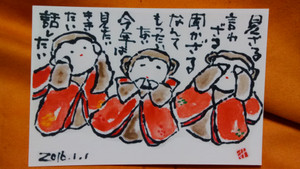 見ざる
言わざる
聞かざる
なんて
もったいない
今年は
見たい
ききたい
話したい
2016.1.1